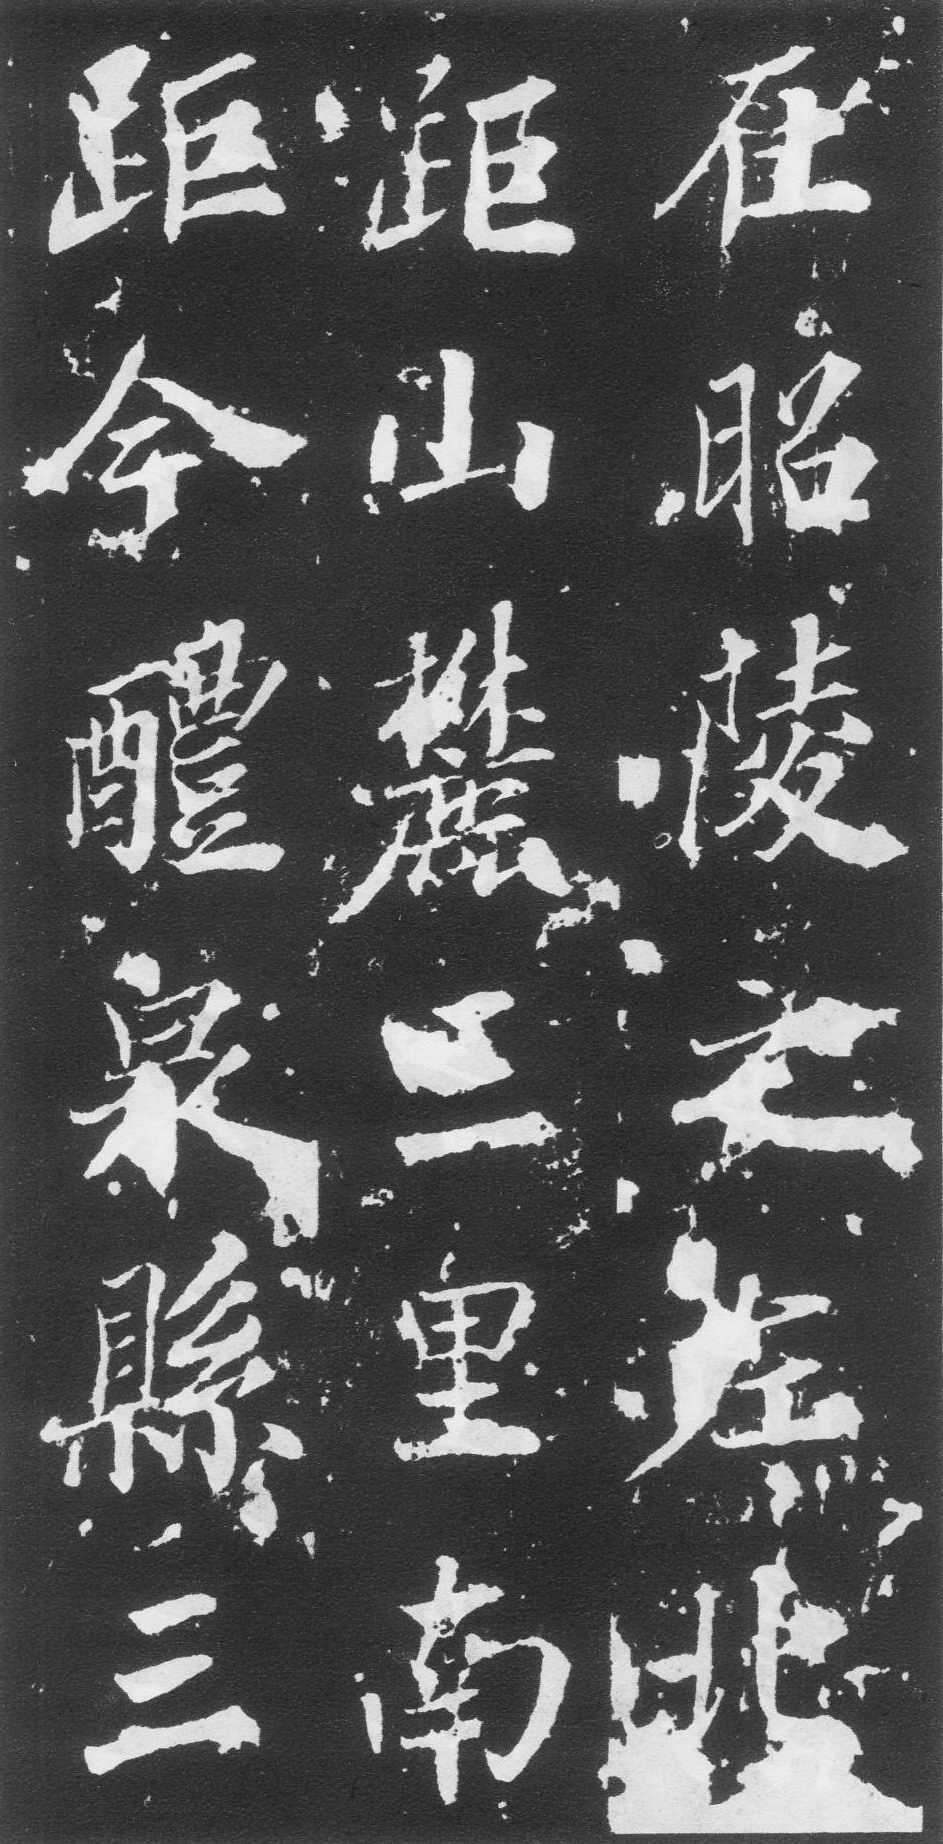 在昭陵之左北
距山麓二里南
距今醴泉縣三